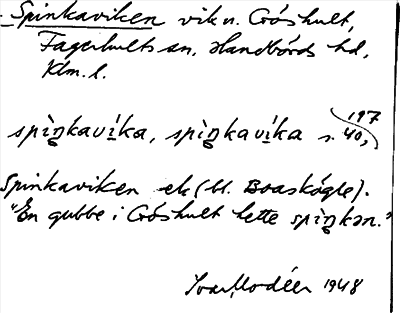 Spinkaviken vik n. Cróshult,
Fagerhults sn. Handbörds hd,
Klm. l.
197
spìŋkavi̱ka, spìŋkavi̱ka s. 40,
Spinkaviken ek (bl. Boaskögle).
"En gubbe i Cróshult hette spìŋkən."
Ivar Modéer 1948